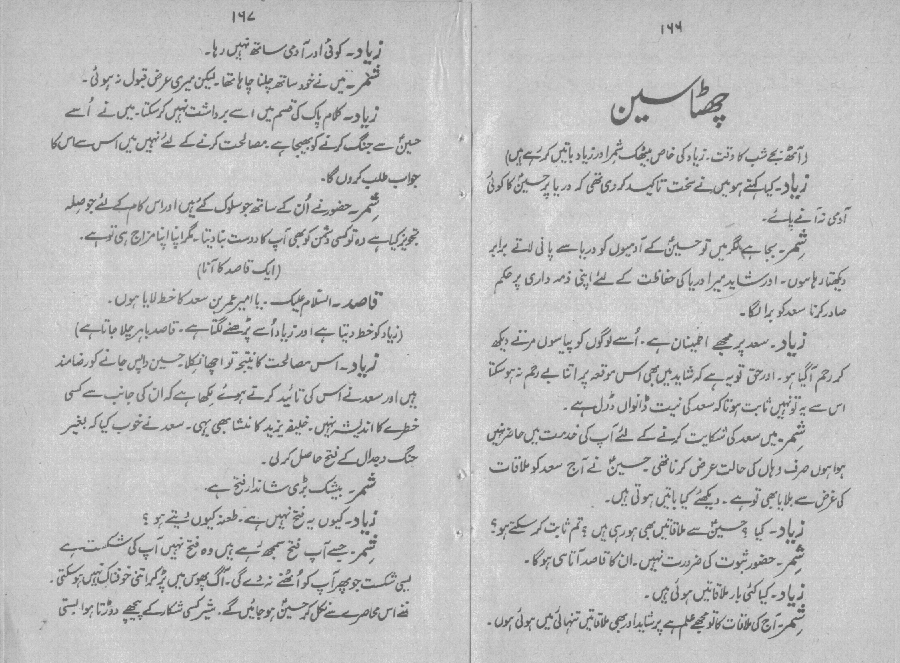 ۱۶۶
چھٹا سین
(آٹھ بجے شب کا وقت۔ زیاد کی خاص بیٹھک شمر اور زیاد باتیں کر رہے ہیں)
زیاد۔ کیا کہتے ہو میں نے سخت تاکید کر دی تھی کہ دریا پر حسینؑ کا کوئی
آدمی نہ آنے پائے۔
شمر۔ بجا ہے مگر میں تو حسینؑ کے آدمیوں کو دریا سے پانی لاتے برابر
دیکھتا رہا ہوں۔ اور شاید میرا دریا کی حفاظت کے لئے اپنی ذمہ داری پر حکم
صادر کرنا سعد کو برا لگا۔
زیاد۔ سعد پر مجھے اطمینان ہے۔ اُسے لوگوں کو پیاسوں مرتے دیکھ
کر رحم آگیا ہو۔ اور حق تو یہ ہے کہ شاید میں بھی اس موقعہ پر اتنا بے رحم نہ ہو سکتا
اس سے یہ تو نہیں ثابت ہوتا کہ سعد کی نیت ڈانواں ڈول ہے۔
شمر۔ میں سعد کی شکایت کرنے کے لئے آپ کی خدمت میں حاضر نہیں
ہوا ہوں صرف وہاں کی حالت عرض کرنا تھی حسینؑ نے آج سعد کو ملاقات
کی غرض سے بلایا بھی تو ہے۔ دیکھئے کیا باتیں ہوتی ہیں۔
زیاد۔ کیا؟ حسینؑ سے ملاقاتیں بھی ہو رہی ہیں؟ تم ثابت کر سکتے ہو؟
شمر۔ حضور ثبوت کی ضرورت نہیں۔ ان کا قاصد آتا ہی ہوگا۔
زیاد۔ کیا کئی بار ملاقاتیں ہوئی ہیں۔
شمر۔ آج کی ملاقات کا تو مجھے علم ہے پر شاید اور بھی ملاقاتیں تنہائی میں ہوئی ہوں۔
۱۶۷
زیاد۔ کوئی اور آدمی ساتھ نہیں رہا۔
شمر۔ میں نے خود ساتھ چلنا چاہا تھا۔ لیکن میری عرض قبول نہ ہوئی۔
زیاد۔ کلام پاک کی قسم میں اسے برداشت نہیں کر سکتا۔ میں نے اُسے
حسینؑ سے جنگ کرنے کو بھیجا ہے۔ مصالحت کرنے کے لئے نہیں میں اس سے اس کا
جواب طلب کروں گا۔
شمر۔ حضور نے اُن کے ساتھ جو سلوک کئے ہیں اور اس کام کے لئے جو صلہ
تجویز کیا ہے وہ تو کسی دشمن کو بھی آپ کا دوست بنا دیتا۔ مگر اپنا اپنا مزاج ہی تو ہے۔
(ایک قاصد کا آنا)
قاصد۔ السلام علیک۔ یا امیر عمر بن سعد کا خط لایا ہوں۔
(زیاد کو خط دیتا ہے اور زیاد اُسے پڑھنے لگتا ہے۔ قاصد باہر چلا جاتا ہے)
زیاد۔ اس مصالحت کا نتیجہ تو اچھا نکلا۔ حسین واپس جانے کو رضامند
ہیں اور سعد نے اس کی تائید کرتے ہوئے لکھا ہے کہ ان کی جانب سے کسی
خطرے کا اندیشہ نہیں۔ خلیفہ یزید کا منشا بھی یہی۔ سعد نے خوب کیا کہ بغیر
جنگ و جدال کے فتح حاصل کر لی۔
شمر۔ بیشک بڑی شاندار فتح ہے۔
زیاد۔ کیوں یہ فتح نہیں ہے۔ طعنہ کیوں دیتے ہو؟
شمر۔ جسے آپ فتح سمجھ رہے ہیں وہ فتح نہیں آپ کی شکست ہے
ایسی شکست جو پھر آپ کو اُٹھنے نہ دے گی۔ آگ پھوس میں پڑ کر اتنی خوفناک نہیں ہو سکتی۔
جتنے اس محاصرے سے نکل کر حسینؑ ہو جائیں گے۔ شیر کسی شکار کے پیچھے دوڑتا ہوا بستی